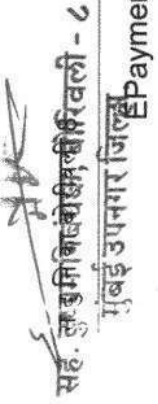 सह. दुय्यम निबंधक, बोरिवली - ८
मुंबई उपनगर जिल्हा
EPaymen